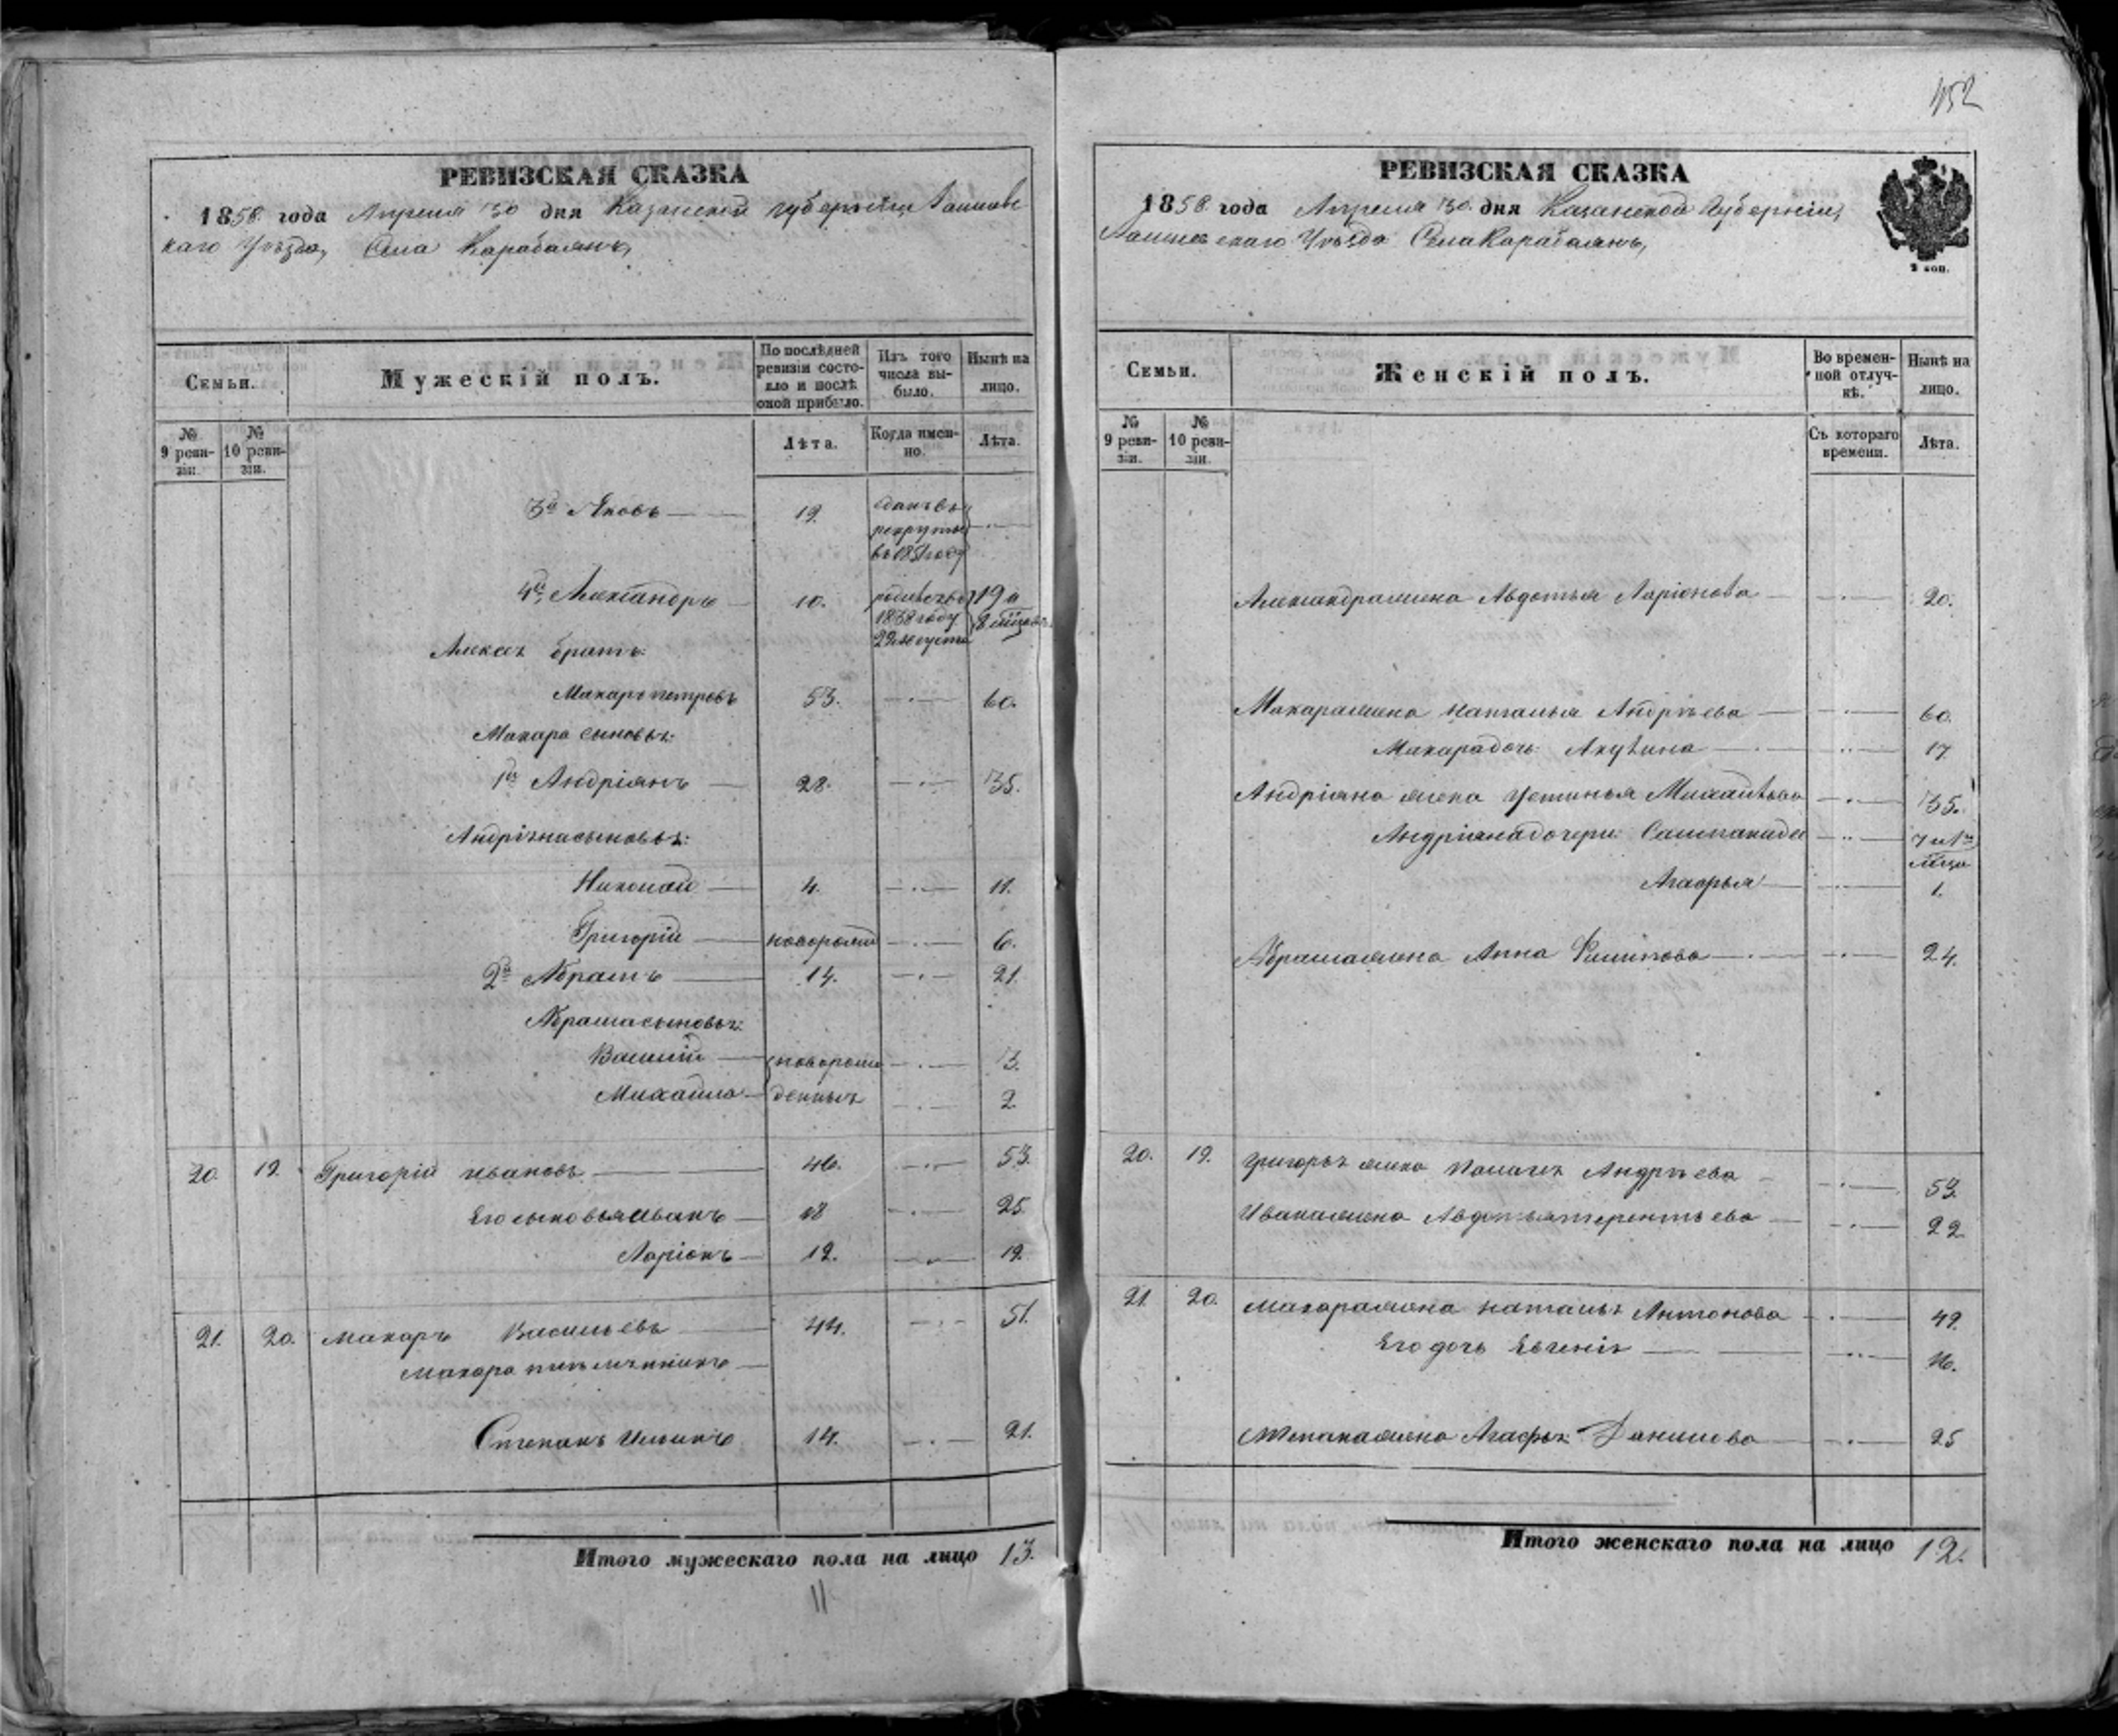 РЕВИЗСКАЯ СКАЗКА
1858 года Апреля 30 дня Казанской губернiи, Лаишевс
каго Уѣзда, Села Карабаянъ,
Семьи.
Мужескiй полъ.
По послѣдней ревизiи состояло и послѣ оной прибыло.
Изъ того числа выбыло.
Нынѣ на лицо.
№ 9 ревизiи.
№ 10 ревизiи.
Лѣта.
Когда именно.
Лѣта.
3й Яковъ 19. сданъ въ
рекруты
въ 1851 году
4й Александръ 10. 19 и
1838 году 8 мцовъ
29 августа
Алексея братъ
Макаръ Петровъ 53. 60.
Макара сыновья:
1й Андрiянъ 28. 35.
Андрiяна сыновья:
Николай 4. 11.
Григорiй новорожд 6.
2й Абрамъ 14. 21.
Абрама сыновья:
Василiй новорож 3.
Михайла денныя 2
20. 19. Григорiй Ивановъ 46. 53.
Его сыновья Иванъ 18 25.
Ларiонъ 12. 19.
21. 20. Макаръ Васильевъ 44. 51.
Макара племянникъ
Степанъ Ильинъ 14. 21.
Итого мужескаго пола на лицо 13.
11
452
РЕВИЗСКАЯ СКАЗКА
1858 года Апреля 30. дня Казанской Губернiи,
Лаишевскаго Уѣзда Села Карабаянъ,
2 коп.
Семьи.
Женскiй полъ.
Во временной отлучкѣ.
Нынѣ на лицо.
№ 9 ревизiи.
№ 10 ревизiи.
Съ котораго времени.
Лѣта.
Александра жена Авдотья Ларiонова 20.
Макара жена Наталья Андрѣева 60.
Макара дочь Акулина 17
Андрiяна жена Устинья Михайлова 35.
Андрiяна дочери: 7
мцa
Агафья 1.
Абрама жена Анна Филипова 24.
20. 19. Григорья жена Палагея Андрѣева 53.
Ивана жена Авдотья Терентьева 22
21 20. Макара жена Наталья Антонова 49.
Его дочь Евгенiя 16.
Степана жена Агафья Данилова 25
Итого женскаго пола на лицо 12.